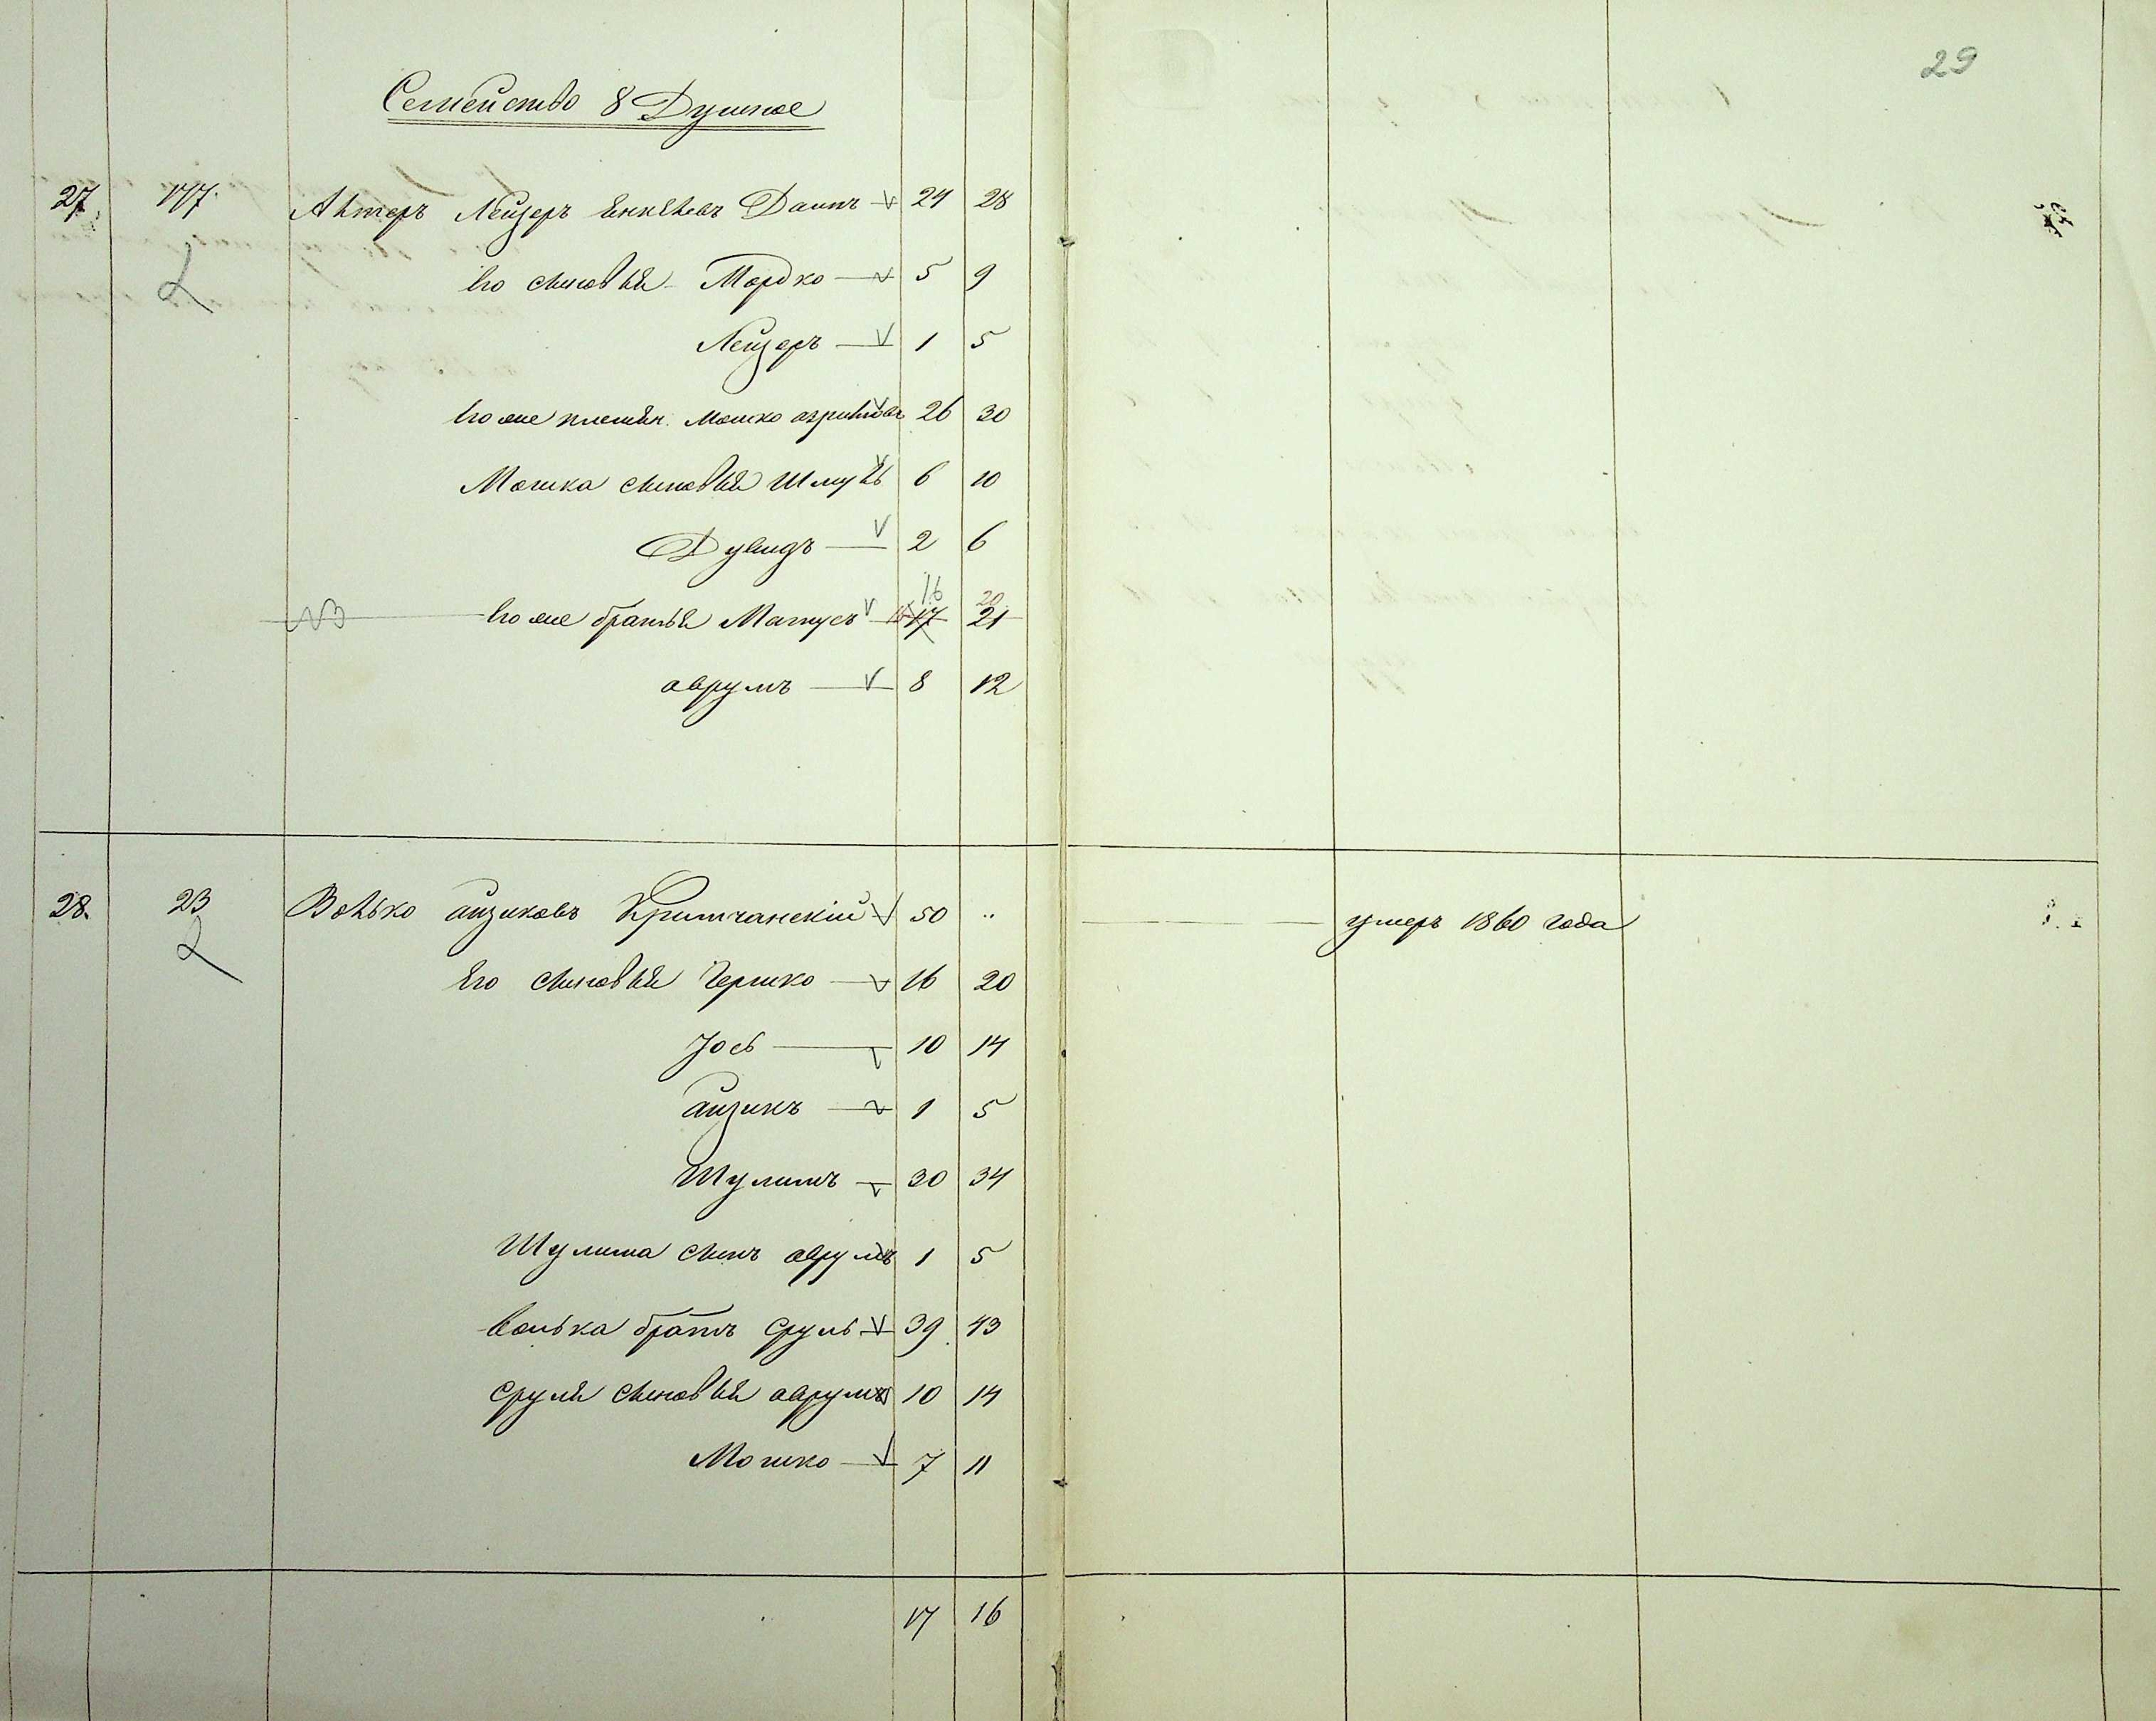 29
Семейство 8 Душное
27. 177. Лейзеръ Данъ 24 28
Его сыновья Мордко 5 9
Лейзеръ 1 5
его же племян. Мошко 26 30
Мошка сыновья Шмуль 6 10
Дувидъ 2 6
его же братья Матусъ 16 17 20 21
аврумъ 8 12
28. 23 Волько айзиковъ Критчанскій 50 "
умеръ 1860 года
Его сыновья Гершко 16 20
Іось 10 14
айзикъ 1 5
Шулимъ 30 34
Шулима сынъ аврумъ 1 5
Волька братъ Сруль 39 43
Сруля сыновья аврумъ 10 14
Мошко 7 11
17 16